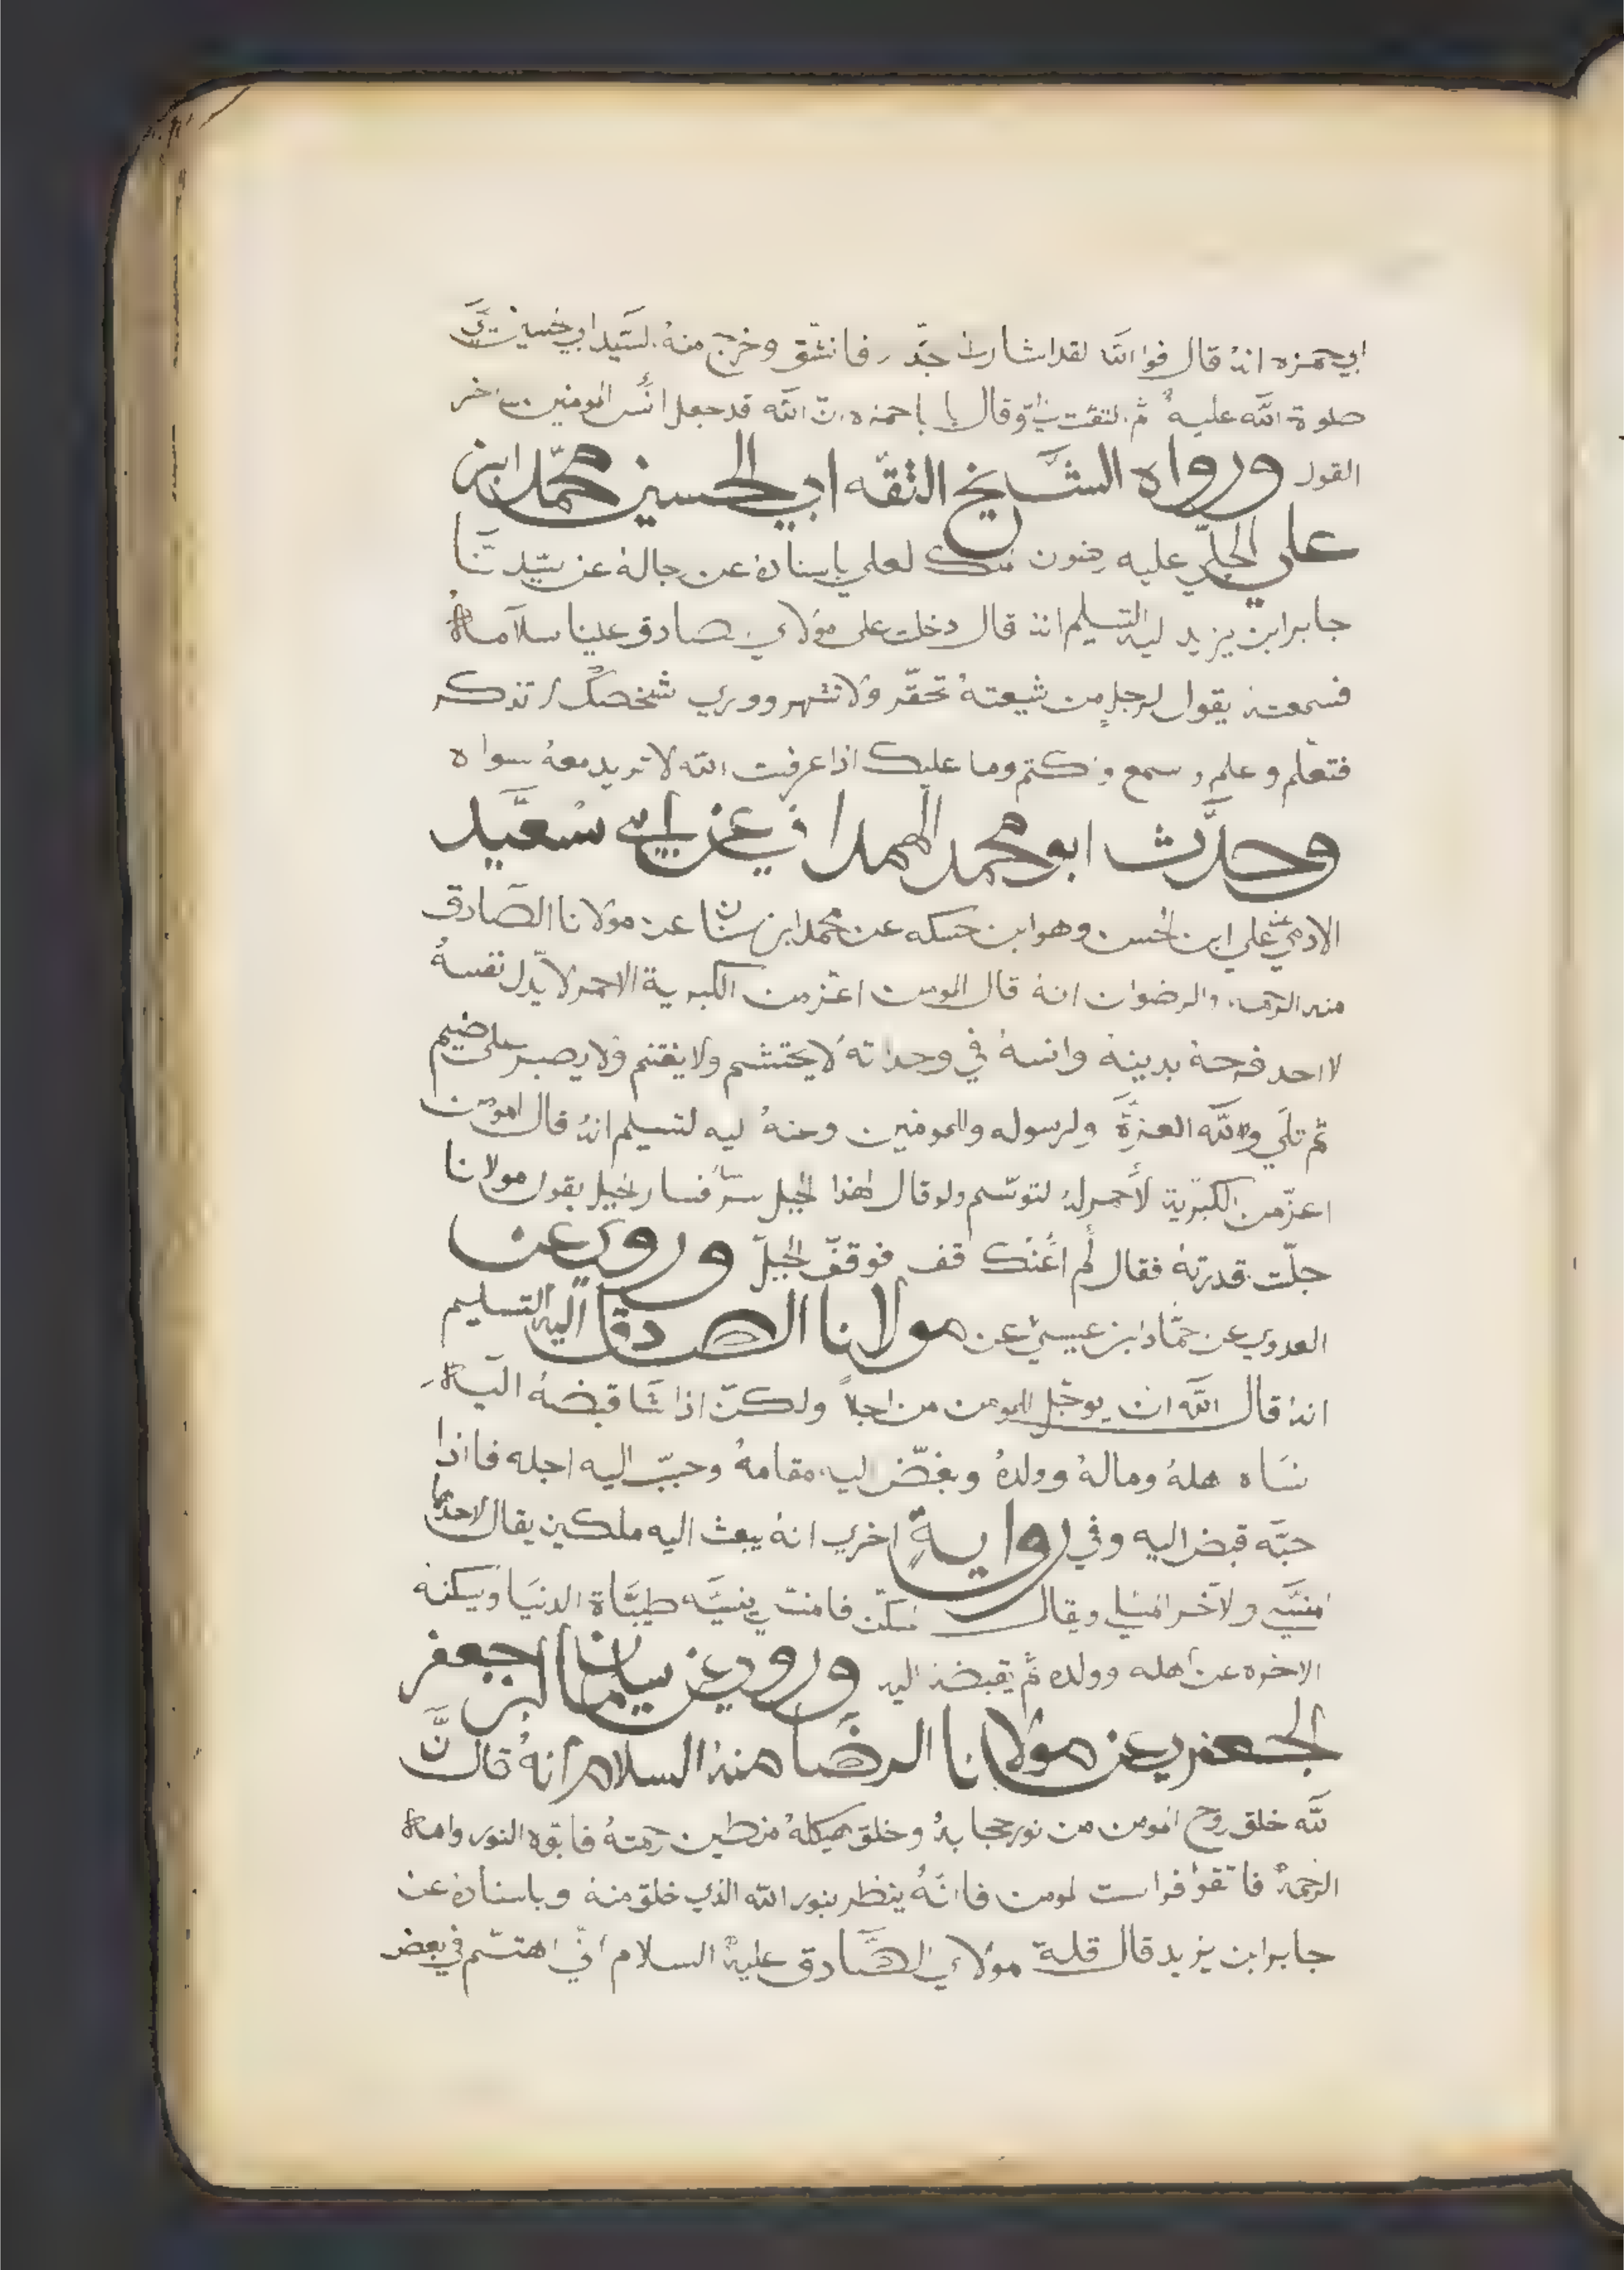 ابي حمزه انهُ قال فوا الله لقد اشار جدّ فانشق وخرج منهُ السيد ابي
صلوة الله عليهُ ثم التفت وقال يا باحمزه انّ الله قد جعل المومنين اخر
القول ورواه الشيخ الثقه ابي الحسين محمّد ابن
علي الجلي عليه رضون لعلي باسناده عن رجاله عن سيّدنا
جابر ابن يزيد ليه التسليم انهُ قال دخلت على مولاي صادق علينا سلامهُ
فسمعته يقول لرجلٍ من شيعتهُ تحقّر ولا تشهر ووري شخصك لا تذكر
فتعلّم وعلم وسمع وكتم وما عليك اذا عرفت الله لا تريد معهُ سواه
وحدّث ابو محمد الهمداني عن ابي سعيد
الادمي عن علي ابن الحسن وهو ابن حسكه عن محمد ابن سنان عن مولانا الصادق
منه الرحمه والرضوان انهُ قال المومن اعزّ من الكبرية الاحمر لا يذل نفسهُ
لا احد فرحهُ بدينهُ وانسهُ في وحداته لا يحتشم ولا يغتنم ولا يصبر على ضيم
ثم تلي ولله العزة ولرسوله وللمومنين وعنهُ ليه لتسليم انهُ قال المومن
اعزّ من الكبرية لأحمر لتوسّم ولو قال لهذا الجبل سر فسار لجبل بقول مولانا
جلّت قدرتهُ فقال لم أعنك قف فوقف الجبل وروي عن
العدوي عن حمّاد ابن عيسى عن مولانا الصادق اليه التسليم
انهُ قال الله ان يوجّل المومن من اجلاً ولكن اذا شا قبضهُ اليه
نساه هلهُ ومالهُ وولدهُ وبغّض ليه مقامهُ وحبب اليه اجله فاذا
حبّه قبض اليه وفي روايةٍ اخري انهُ يبعث اليه ملكين يقال لاحدهما
منسّي ولآخر ويقال فامنت ينسيّه طيباة الدنيا ويسكنهُ
الاخره عن اهله وولده ثم يقبضهُ اليه وروي عن سليمان ابن جعفر
الجعفري عن مولانا الرضا منهُ السلام انهُ قال انّ
لله خلق روح المومن من نور حجابهُ وخلق هيكلهُ من طين رحمتهُ فابوه النور وامه
الرحمة فاتقوُ فراست لمومن فانهُ ينظر بنور الله الذي خلق منهُ وباسناده عن
جابر ابن يزيد قال قلة مولاي الصادق عليهُ السلام انّي اهتسّم في بعض